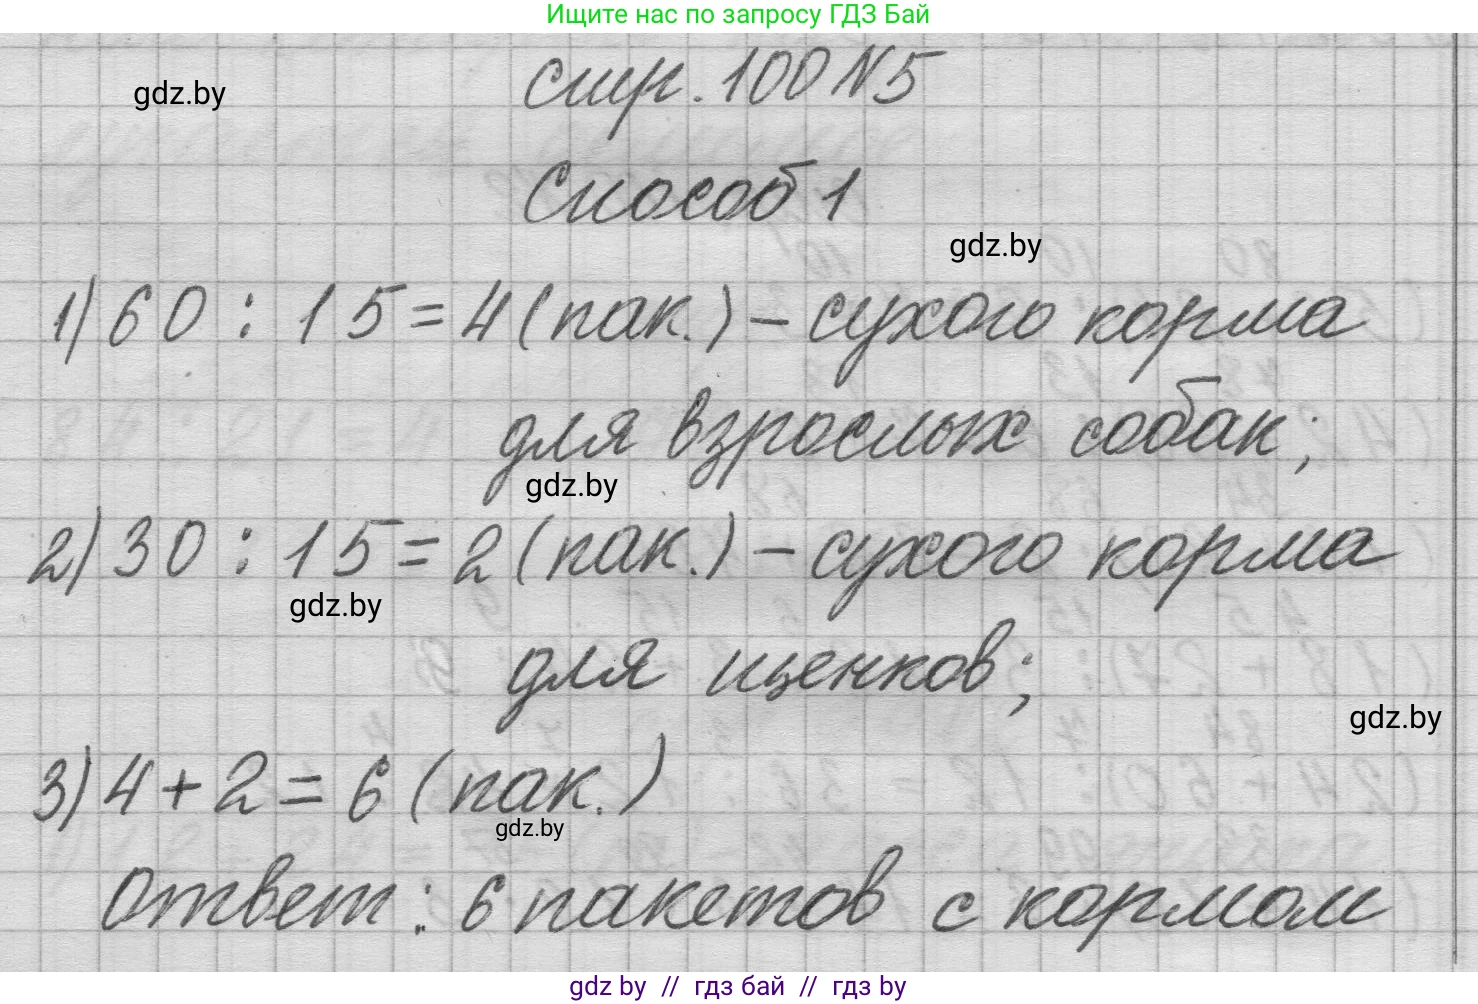 Ищите нас по запросу ГДЗ Бай
gdz.by
стр. 100 N5
Способ 1
gdz.by
1) 60 : 15 = 4 (пак.) – сухого корма
для взрослых собак;
gdz.by
2) 30 : 15 = 2 (пак.) – сухого корма
gdz.by
для щенков;
gdz.by
3) 4 + 2 = 6 (пак.)
gdz.by
Ответ: 6 пакетов с кормом
gdz by // гдз бай // гдз by